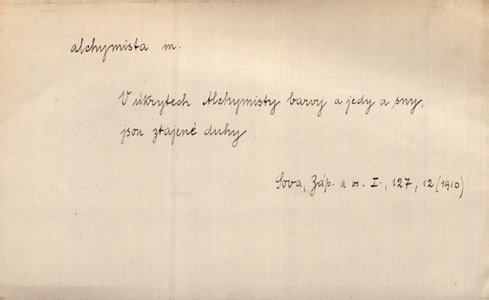 alchymista m.
V úkrytech Alchymisty barvy a jedy a sny,
jsou ztajené duhy
Sova, Záp. a vr. I., 127, 12 (1910)